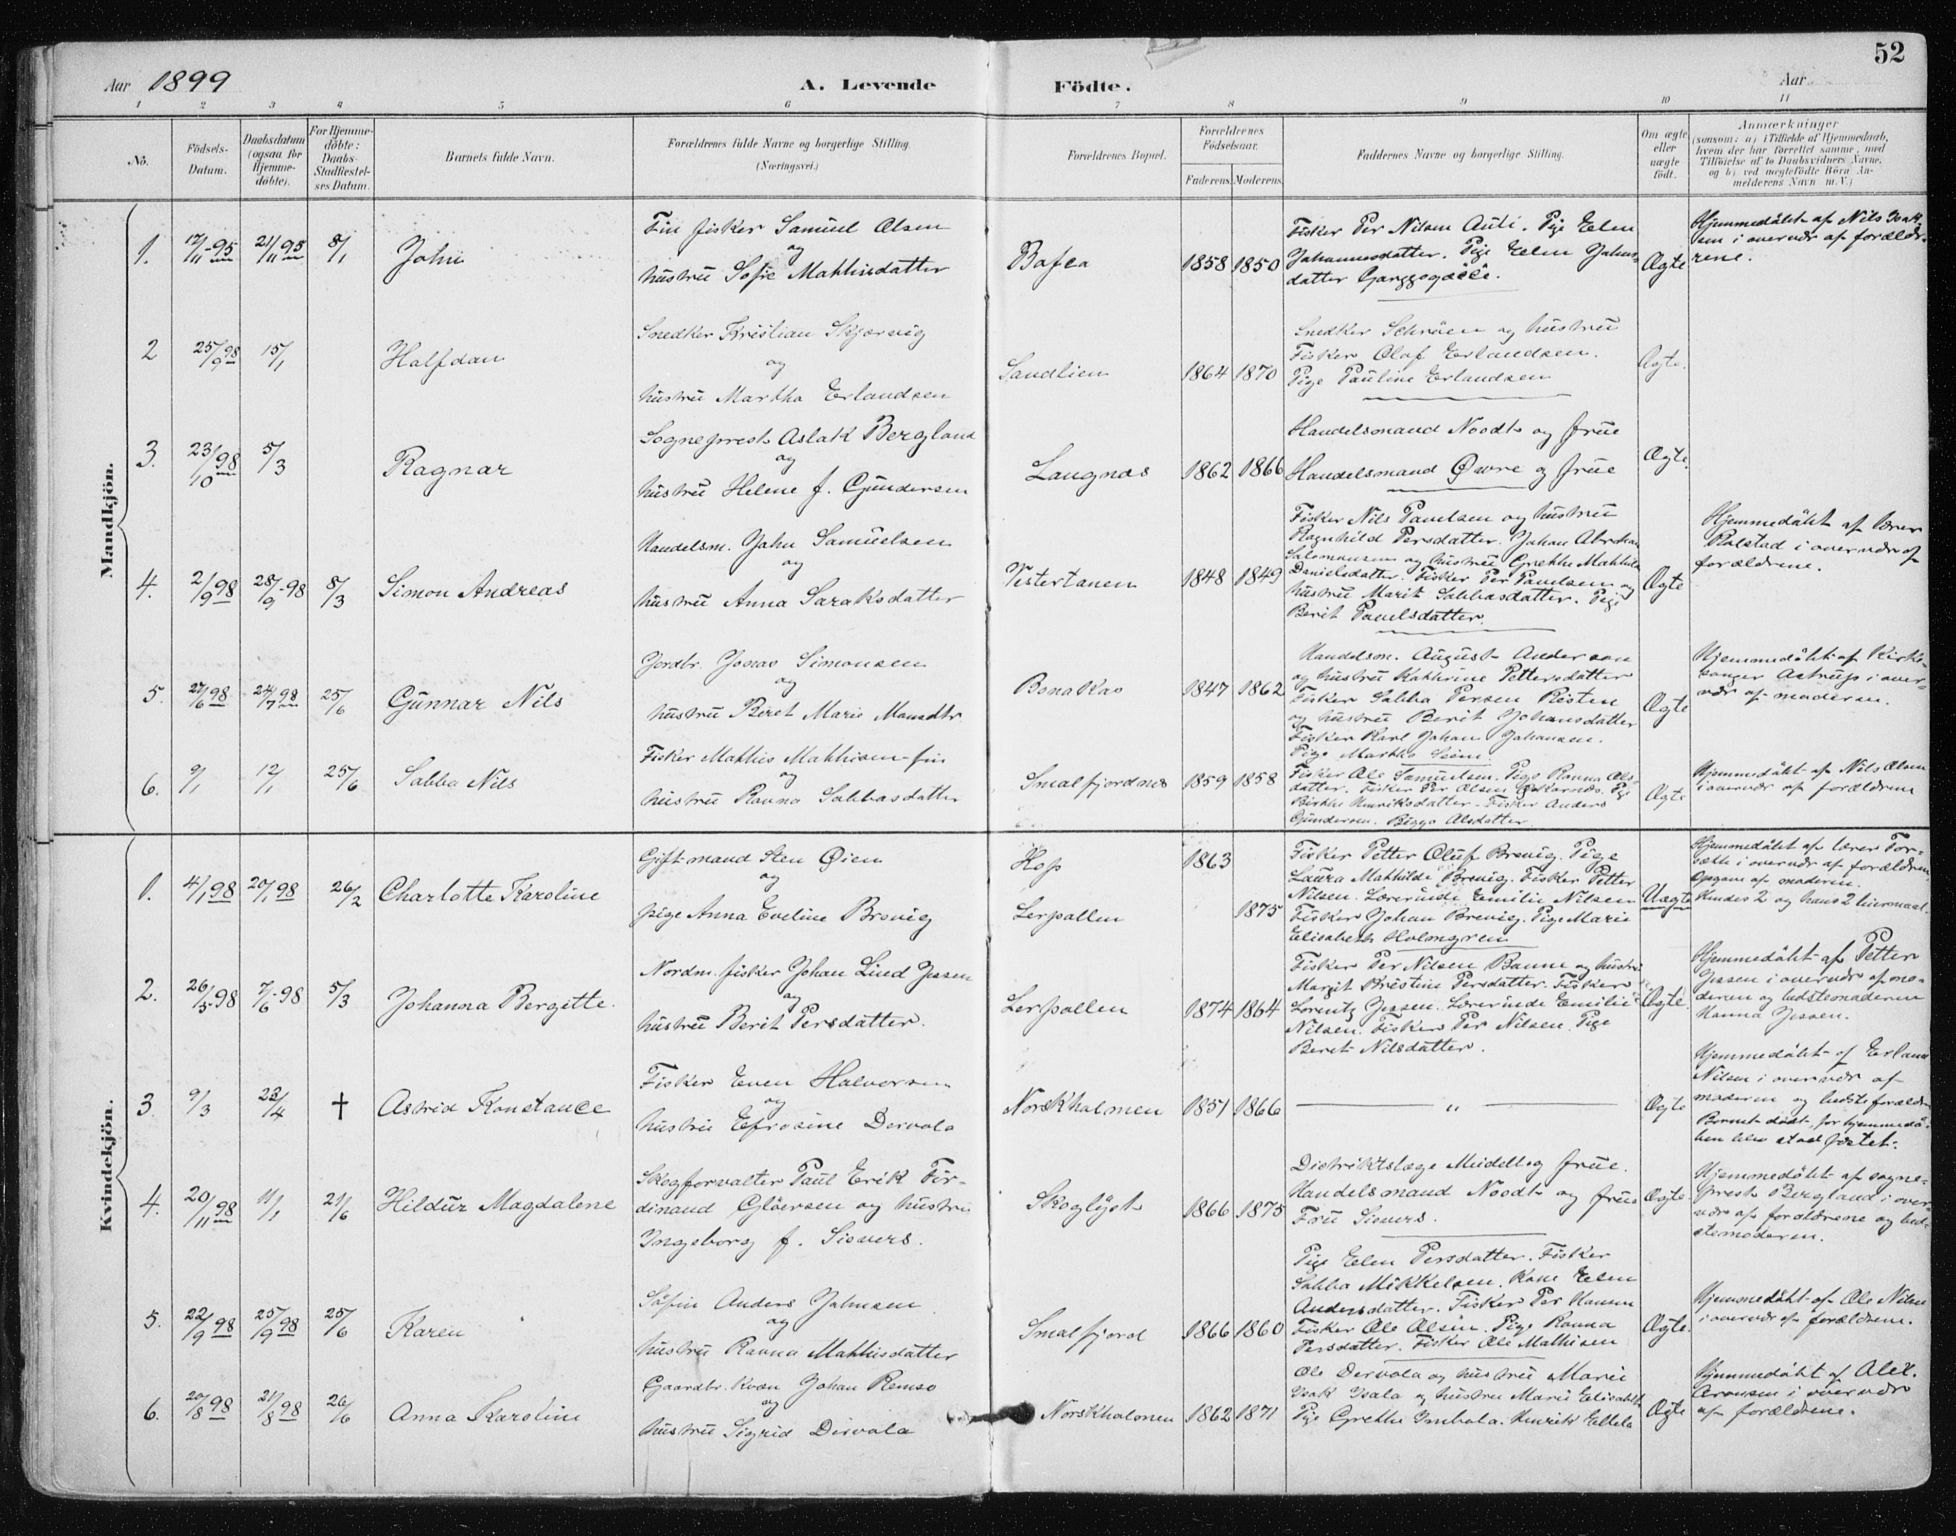 52
Aar 1899
A. Levende Födte.
Aar
1 2 3 4 5 6 7 8 9 10 11
No.
Födsels-Datum.
Daabsdatum (ogsaa for Hjemme-döbte).
For Hjemme-döbte: Daabs-Stadfæstel-ses Datum.
Barnets fulde Navn.
Forældrenes fulde Navne og borgerlige Stilling (Næringsvei.)
Forældrenes Bopæl.
Forældrenes Födselsaar.
Faderens. Moderens.
Faddernes Navne og borgerlige Stilling.
Om ægte eller uægte födt.
Anmærkninger
(saasom: a) i Tilfælde af Hjemmedaab,
hvem der har forrettet samme, med
Tilföielse af to Daabsvidners Navne,
og b) ved uægtefödte Börn An-
melderens Navn m. V.)
Mandkjön.
1. 17/11-95 21/11 95 8/1 John
Fin fisker Samuel Olsen
og
hustru Sofie Mathisdatter
Bafca 1858 1850
Fisker Per Nilsen Auti. Pige Elen
Johannesdatter. Pige Elen Johns-
datter
Ægte
Hjemmedöbt af Nils Isak-
sen i overvær af foræld-
rene.
2 25/9 98 15/1 Halfdan
Snedker Kristian Skjærvig
og
hustru Martha Erlandsen
Sandlien 1864 1870
Snedker Schröen og hustru
Fisker Olaf Erlandsen.
Pige Pauline Erlandsen
Ægte.
3. 23/10 98 5/3 Ragnar
Sogneprest Aslak Bergland
og
hustru Helene f. Gundersen
Langnæs 1862 1866
Handelsmand Noodt og frue
Handelsmand Øvre og frue
Ægte.
4. 2/9 98 28/9-98 8/3 Simon Andreas
Handelsm. John Samuelsen
og
hustru Anna Saraksdatter
Vestertanen 1848 1849
Fisker Nils Pavelsen og hustru
Ragnhild Persdatter. Johan Abraham
Salomonsen og hustru Grethe Mathilde
Danielsdatter. Fisker Per Pavelsen og
hustru Marit Sabbasdatter. Pige
Berit Pavelsdatter.
Ægte
Hjemmedöbt af lærer
Rolstad i overvær af
forældrene.
5. 27/6 98 24/7 98 25/6 Gunnar Nils
Jordbr. Jonas Simonsen
og
hustru Beret Marie Monsdtr.
Bonakas 1847 1862
Handelsm. August Andersen
og hustru Kathrine Pettersdatter
Fisker Sabba Persen Risten
og hustru Berit Johansdatter
Fisker Karl Johan Johansen.
Pige Martha
Ægte
Hjemmedöbt af Kirke-
sanger Astrup i over-
vær af moderen.
6. 9/1 12/1 25/6 Sabba Nils
Fisker Mathis Mathisen fin
og
hustru Ravna Sabbasdatter
Smalfjordnes 1859 1858
Fisker Ole Samuelsen. Pige Ravna Ols-
datter. Fisker Per Olsen Pige
Birthe Henriksdatter. Fisker Anders
Gundersen. Biggo Olsdatter.
Ægte
Hjemmedöbt af Nils Olsen
i overvær af forældrene
Kvindekjön.
1. 4/1 98 20/1 98 26/2 Charlotte Karoline
Gift mand Sten Øien
og
pige Anna Eveline Brevig
Hop 1863
Lerpollen 1875
Fisker Petter Oluf Brevig. Pige
Laura Mathilde Brevig. Fisker Petter
Nilsen. Lærerinde Emilie Nilsen
Fisker Johan Brevig. Pige Marie
Elisabeth Holmgren
Uægte
Hjemmedöbt af lærer For-
sæth i overvær af forældren
Opgave af moderen.
Hendes 2 og hans 2 leiermaal.
2. 26/5-98 7/6-98 5/3 Johanna Bergitte.
Nordm. fisker Johan Lind Jessen
og
hustru Berit Persdatter.
Lerpollen 1874 1864
Fisker Per Nilsen Banne og hustru
Margit Kristine Persdatter. Fisker
Lorentz Jessen. Lærerinde Emilie
Nilsen. Fisker Per Nilsen. Pige
Beret Nilsdatter.
Ægte.
Hjemmedöbt af Petter
Jessen i overvær af mo-
deren og bedstemoderen
Hanna Jessen.
3. 9/3 23/4 † Astrid Konstance
Fisker Even Halvorsen
og
hustru Efrosine Dervola
Norskholmen 1851 1866
— „ —
Ægte
Hjemmedöbt af Erland
Nilsen i overvær af
moderen og bedsteforældre
Barnet dödt, för hjemmedaa-
ben blev stadfæstet.
4. 20/11 98 11/1 21/6 Hildur Magdalene
Skogforvalter Paul Erik Fer-
dinand Glöersen og hustru
Ingeborg f. Sievers.
Skoglyst 1866 1875
Distriktslæge Meidell og frue.
Handelsmand Noodt og frue
Fru Sievers.
Ægte
Hjemmedöbt af sogne-
prest Bergland i over-
vær af forældrene og bed-
stemoderen.
5. 22/9 98 25/9 98 25/6 Karen
Söfin Anders Johnsen
og
hustru Ravna Mathisdatter
Smalfjord 1866 1860
Pige Elen Persdatter. Fisker
Sabba Mikkelsen. Kone Elen
Andersdatter. Fisker Per Hansen
Fisker Ole Olsen. Pige Ravna
Persdatter. Fisker Ole Mathisen
Ægte.
Hjemmedöbt af Ole Nilsen
i overvær af forældrene.
6. 20/8 98 21/8 98 26/6 Anna Karoline
Gaardbr. kvæn Johan Remso
og
hustru Sigrid Dervola
Norskholmen 1862 1871
Ole Dervola og hustru Marie
Isak Isala og hustru Marie Elisabeth
Pige Grethe Henrik
Ægte
Hjemmedöbt af Alex.
Aronsen i overvær
af forældrene.